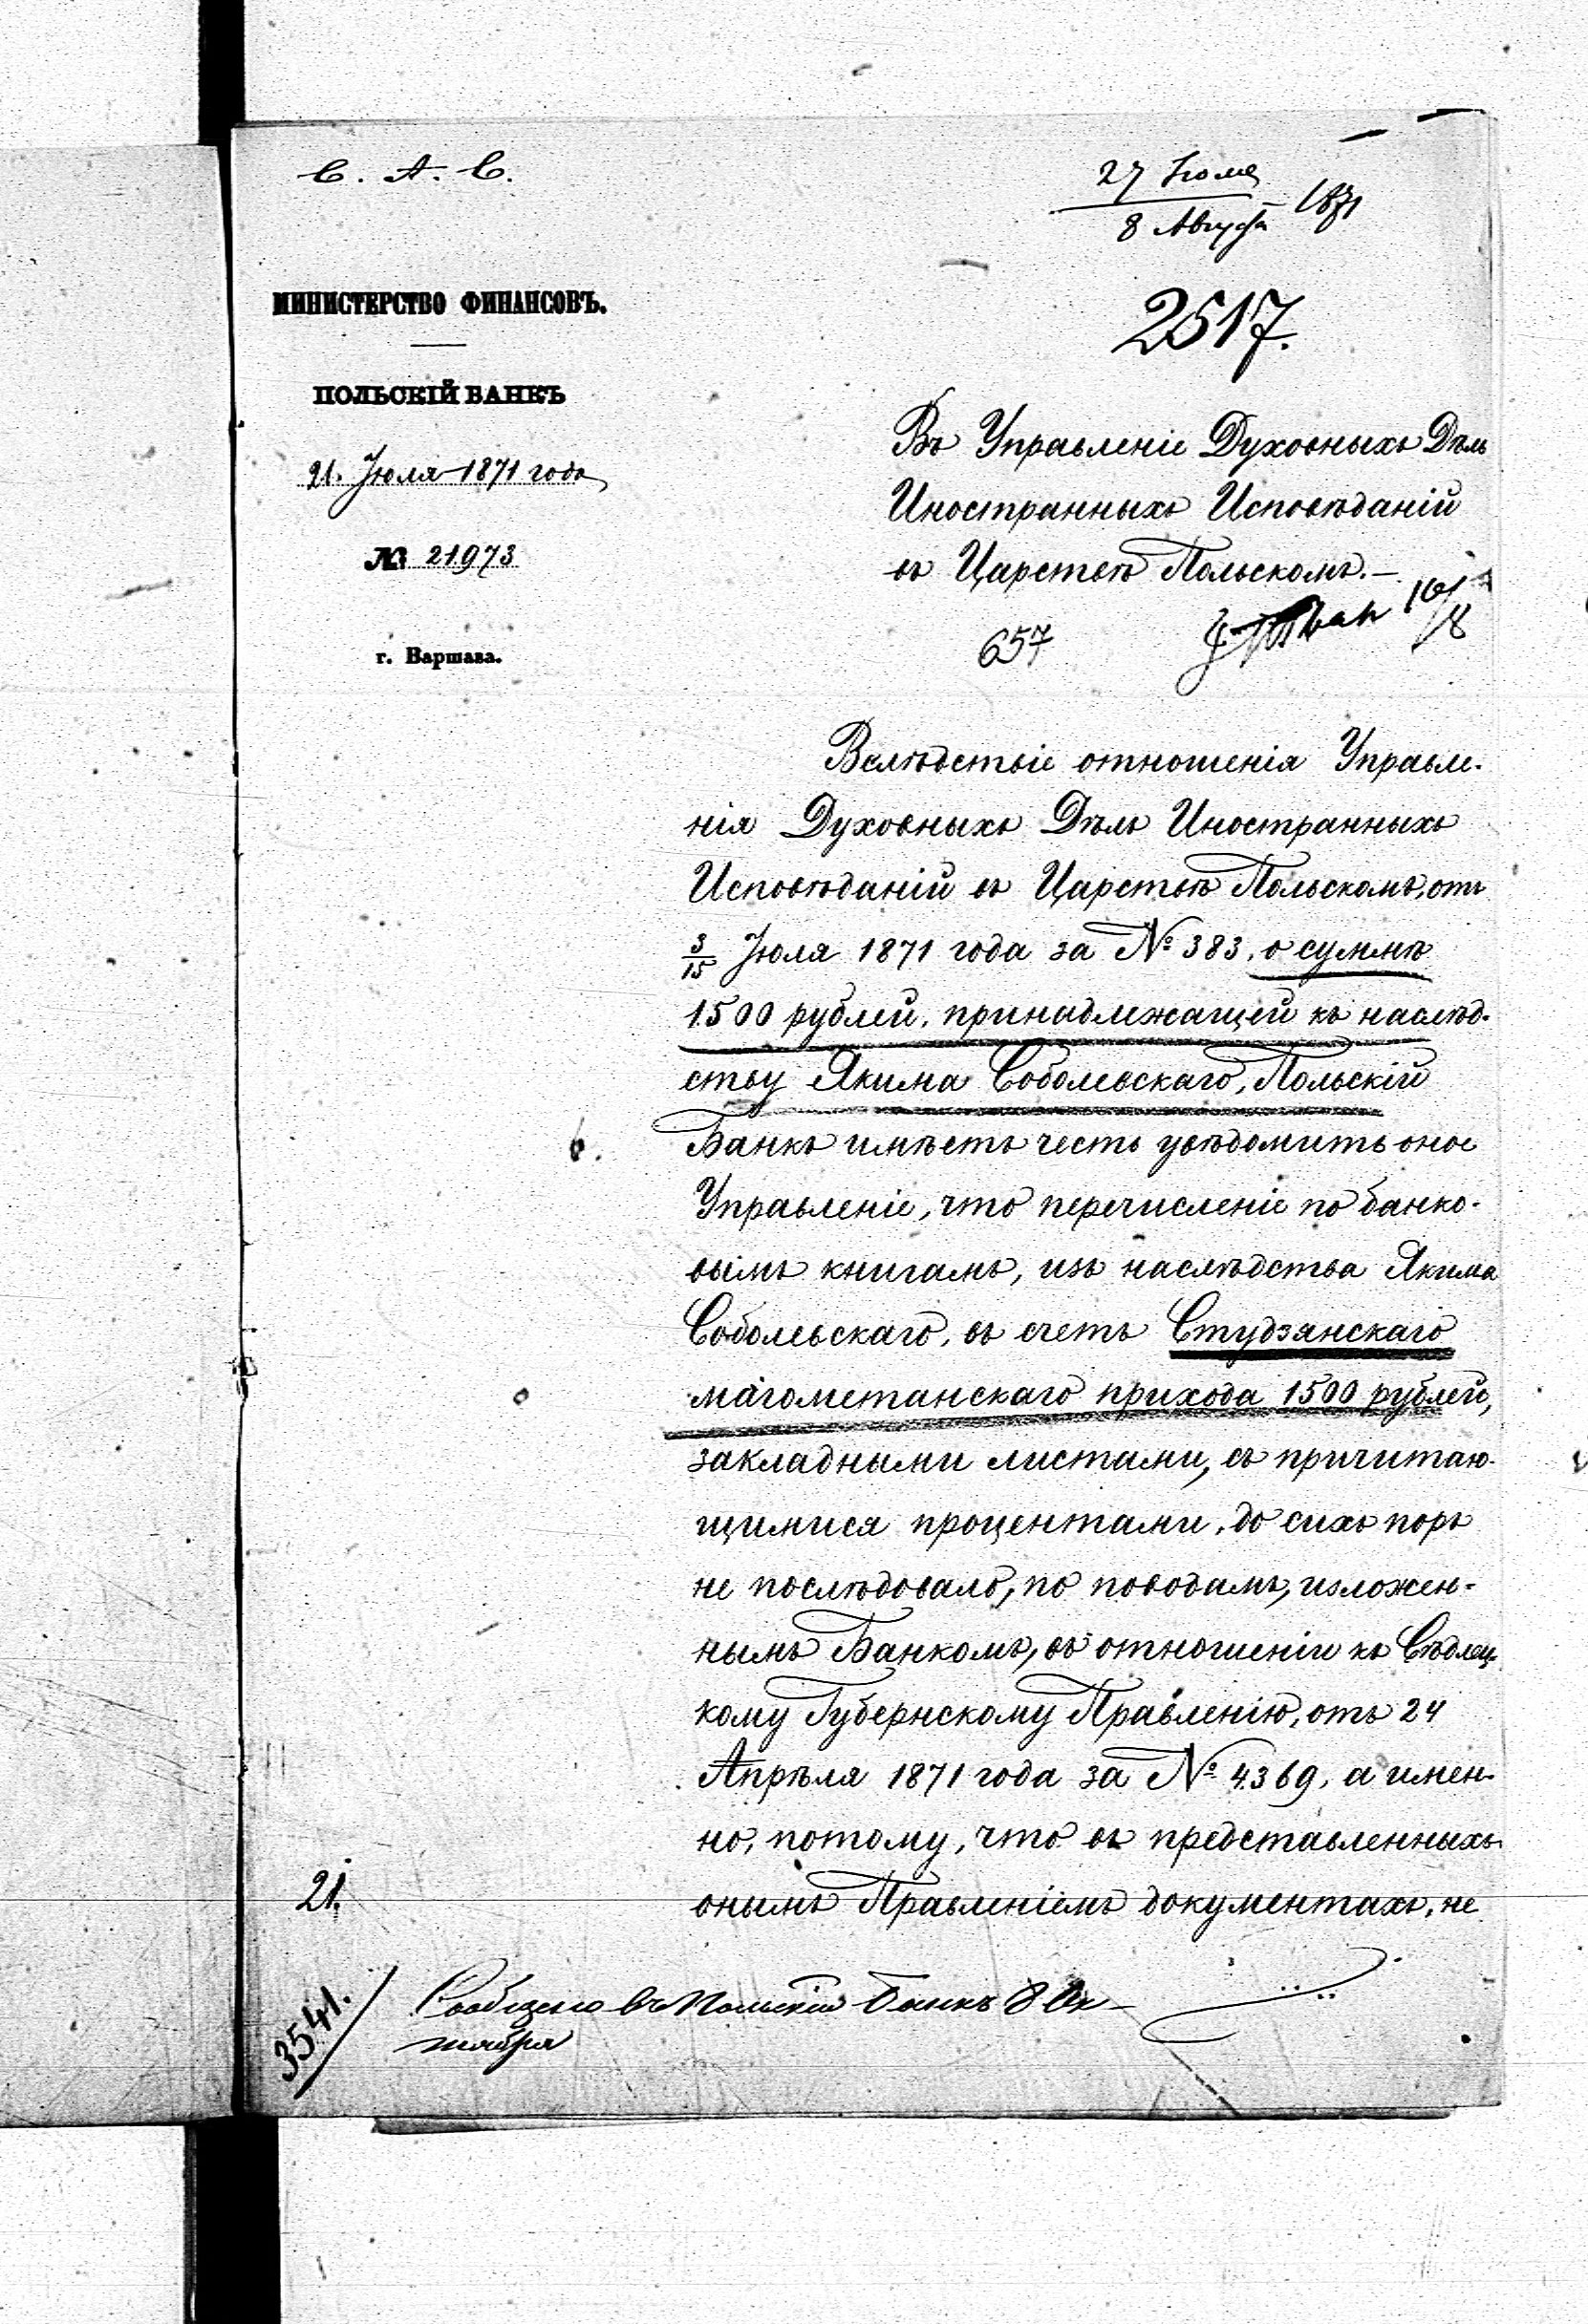 С. А. С.
27 Іюля
8 Августа 1871
МИНИСТЕРСТВО ФИНАНСОВЪ.
2517.
ПОЛЬСКІЙ БАНКЪ
21. Іюля 1871 года
№ 21973
г. Варшава.
Въ Управленіе Духовныхъ Дѣлъ
Иностранныхъ Исповѣданій
въ Царствѣ Польскомъ.—
657
16/8
Вслѣдствіе отношенія Управле-
нія Духовныхъ Дѣлъ Иностранныхъ
Исповѣданій въ Царствѣ Польскомъ, отъ
3/15 Іюля 1871 года за № 383, о суммѣ
1500 рублей, принадлежащей къ наслѣд-
ству Якима Соболевскаго, Польскій
Банкъ имѣетъ честь увѣдомить оное
Управленіе, что перечисленіе по банко-
вымъ книгамъ, изъ наслѣдства Якима
Соболевскаго, въ счетъ Студзянскаго
магометанскаго прихода 1500 рублей,
закладными листами, съ причитаю-
щимися процентами, до сихъ поръ
не послѣдовало, по поводамъ, изложен-
нымъ Банкомъ, въ отношеніи къ Сѣдлец-
кому Губернскому Правленію, отъ 24
Апрѣля 1871 года за № 4369, а имен-
но, потому, что въ представленныхъ
онымъ Правленіемъ документахъ, не
21.
3541.
Сообщено въ Польскій Банкъ 8 Ок-
тября